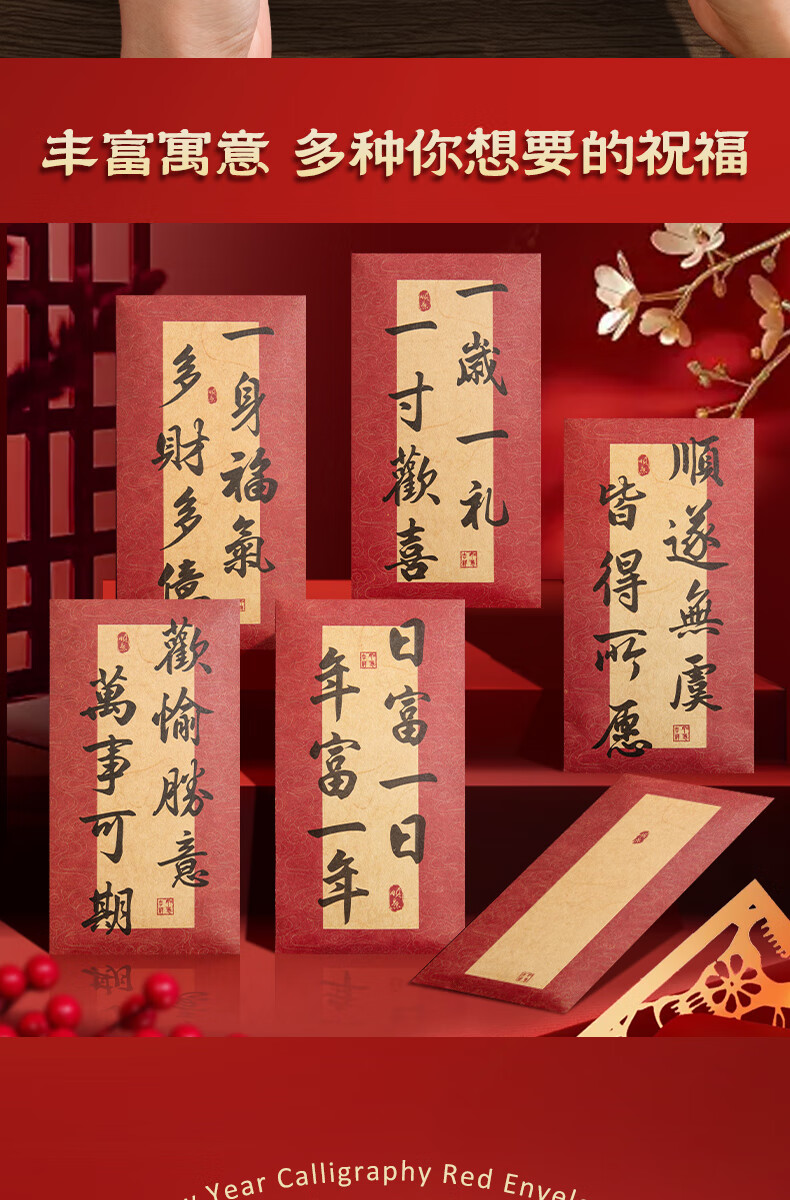 丰富寓意 多种你想要的祝福
一身福氣
多財多億
一歲一礼
一寸歡喜
順遂無虞
皆得所愿
歡愉勝意
萬事可期
日富一日
年富一年
Year Calligraphy Red